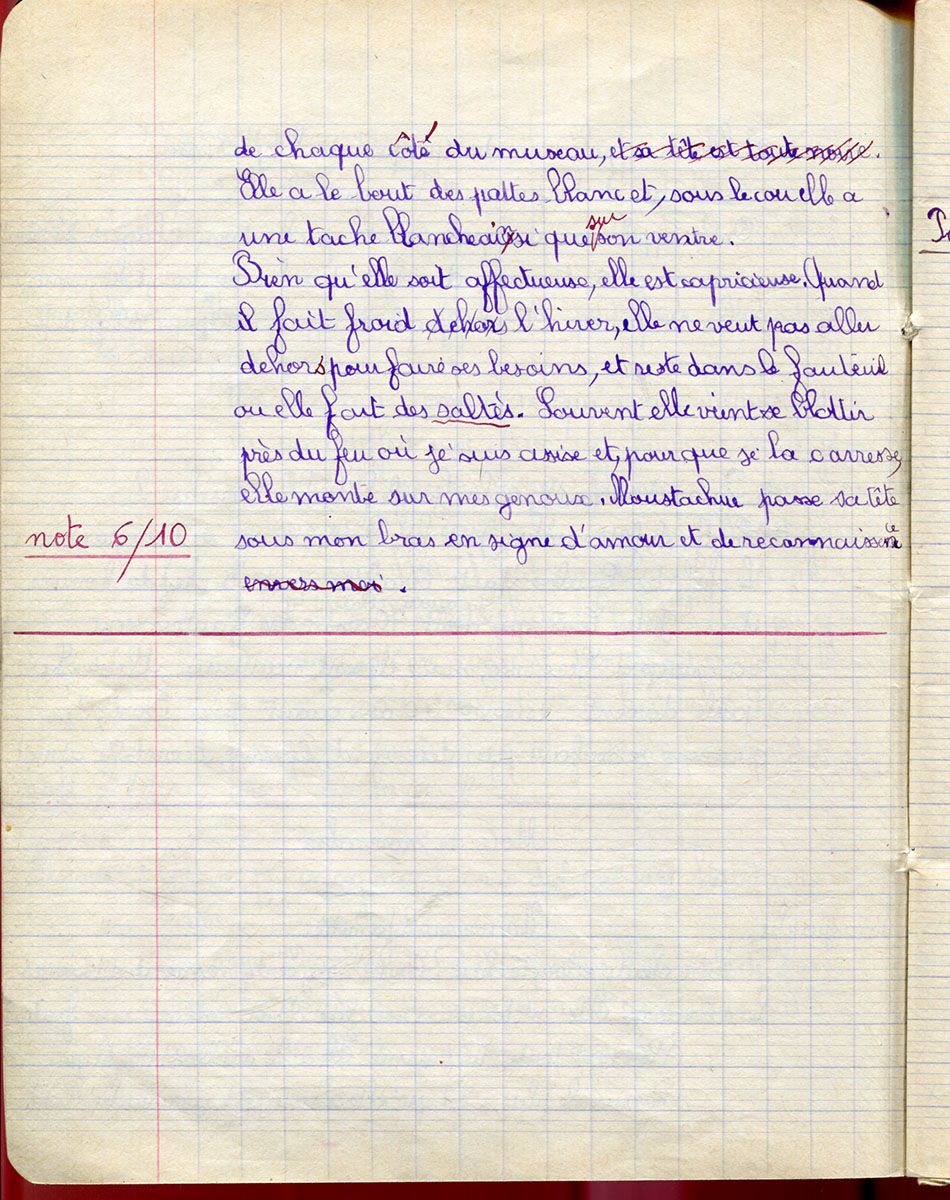 de chaque côté du museau, et sa tête est toute noire.
Elle a le bout des pattes blanc et, sous le cou elle a
une tache blanche ainsi que sur son ventre.
Bien qu'elle soit affectueuse, elle est capricieuse. Quand
il fait froid dehors l'hiver, elle ne veut pas aller
dehors pour faire ses besoins, et reste dans le fauteuil
ou elle fait des saltés. Souvent elle vient se blottir
près du feu où je suis assise et, pour que je la carresse,
elle monte sur mes genoux. Moustachue passe sa tête
note 6/10
sous mon bras en signe d'amour et de reconnaissance
envers moi.